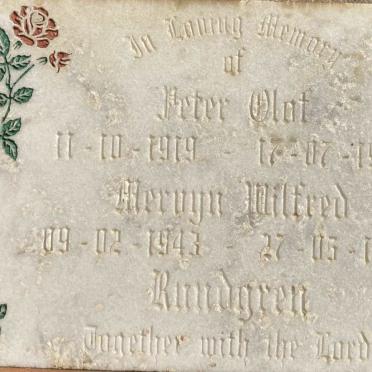 In Loving Memory
of
Peter Olof
11-10-1919 - 17-07-19
Mervyn Wilfred
09-02-1943 - 27-05-1
Rundgren
Together with the Lord